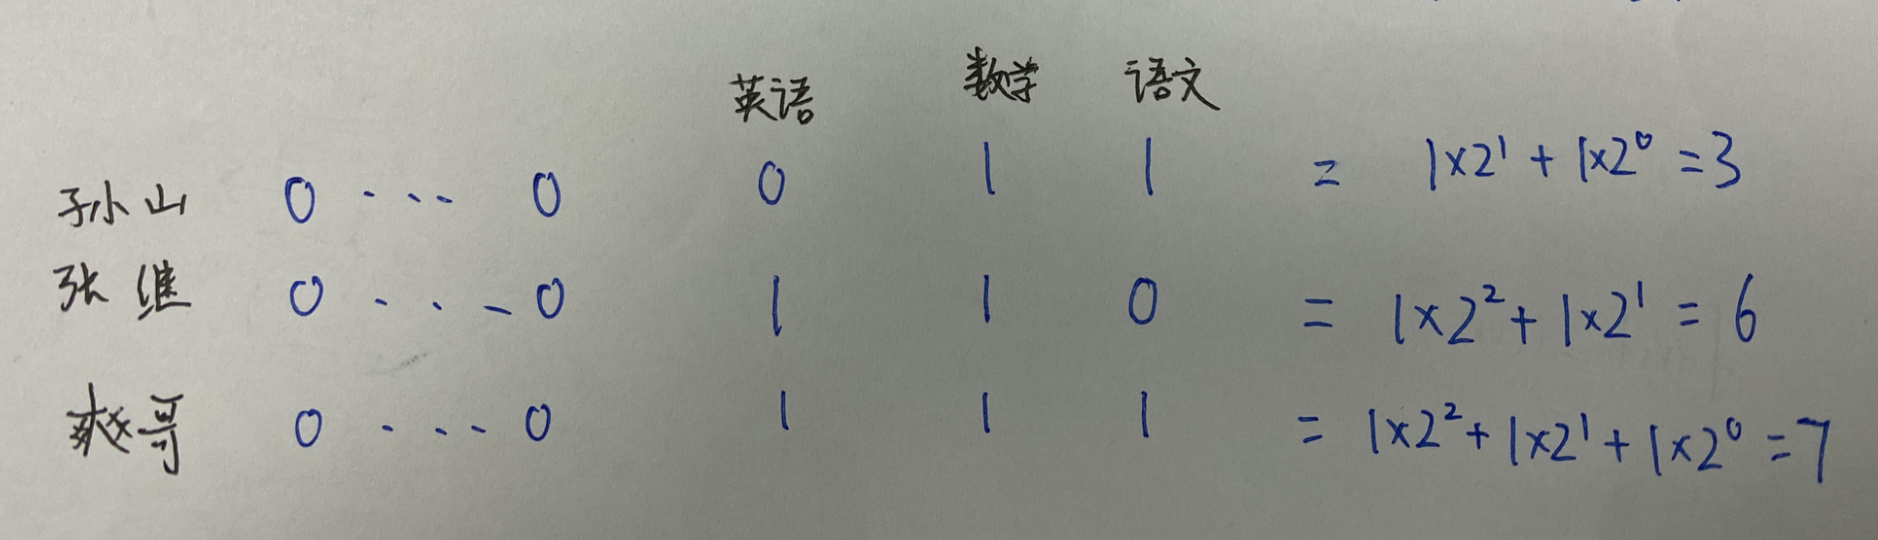 英语 数学 语文
孙山 0 ... 0 0 1 1 = 1×2¹ + 1×2⁰ = 3
张继 0 ... 0 1 1 0 = 1×2² + 1×2¹ = 6
爽哥 0 ... 0 1 1 1 = 1×2² + 1×2¹ + 1×2⁰ = 7